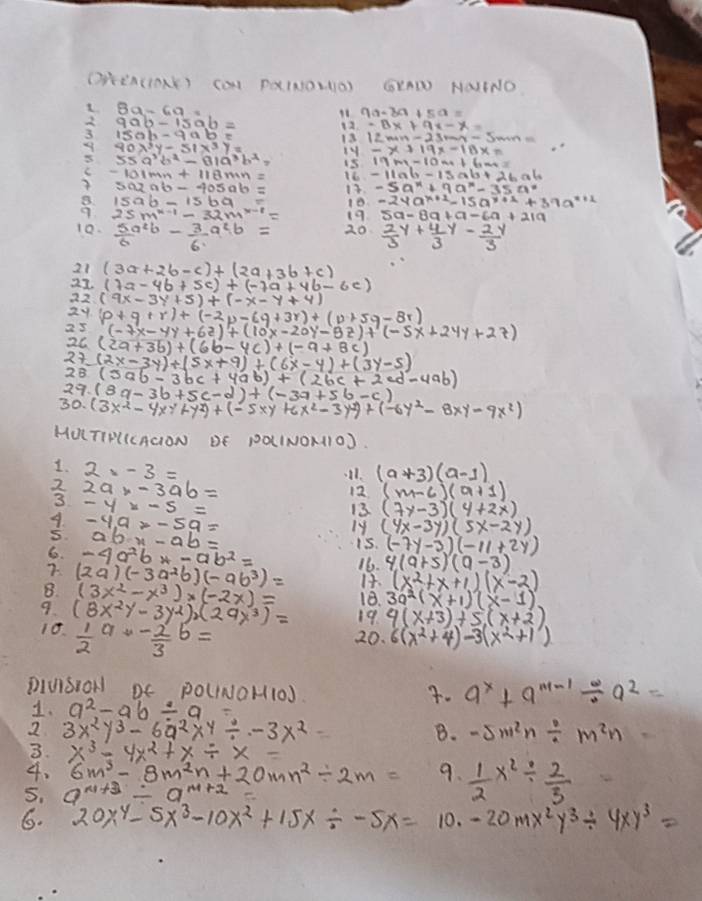 OPERACIONES CON POLINOMIOS GRADO NOVENO
1 8a - 6a =
2 9ab - 15ab =
3 15ab - 9ab =
4 40x³y - 51x³y =
5 55a³b² - 81a³b² =
6 -101mn + 118mn =
7 502ab - 405ab =
8 15ab - 15ba =
9. 25m^(x-1) - 32m^(x-1) =
10. 5a²b/6 - 3a²b/6 =
11 9a - 3a + 5a =
12 -8x + 9x - x =
13 12mn - 23mn - 5mn =
14 -x + 19x - 18x =
15 19m - 10m + 6m =
16 -11ab - 15ab + 26ab
17. -5aˣ + 9aˣ - 35aˣ
18 -24a^(x+2) - 15a^(x+2) + 39a^(x+2)
19 5a - 8a + a - 6a + 21a
20 2/3 y + 4/3 y - 2y/3
21 (3a + 2b - c) + (2a + 3b + c)
22. (7a - 4b + 5c) + (-7a + 4b - 6c)
22. (9x - 3y + 5) + (-x - y + 4)
24 (p + q + r) + (-2p - 6q + 3r) + (p + 5q - 8r)
25 (-7x - 4y + 6z) + (10x - 20y - 8z) + (-5x + 24y + 2z)
26 (2a + 3b) + (6b - 4c) + (-a + 8c)
27 (2x - 3y) + (5x + 9) + (6x - 4) + (3y - 5)
28 (5ab - 3bc + 4ab) + (2bc + 2cd - 4ab)
29. (8a - 3b + 5c - d) + (-3a + 5b - c)
30. (3x² - 4xy + y²) + (-5xy + 6x² - 3y²) + (-6y² - 8xy - 9x²)
MULTIPLICACION DE POLINOMIOS.
1. 2 × -3 =
2 2a × -3ab =
3 -4 × -5 =
4 -4a × -5a =
5. ab × -ab =
6. -4a²b × -ab² =
7. (2a)(-3a²b)(-ab³) =
8. (3x² - x³) × (-2x) =
9. (8x²y - 3y²) × (2ax³) =
10. 1/2 a × -2/3 b =
11. (a+3)(a-1)
12 (m-6)(a+1)
13 (7y-3)(4+2x)
14 (4x-3y)(5x-2y)
15. (-7y-3)(-11+2y)
16. 4(a+5)(a-3)
17. (x²+x+1)(x-2)
18. 3a²(x+1)(x-1)
19 9(x+3)+5(x+2)
20. 6(x²+4)-3(x²+1)
DIVISION DE POLINOMIOS
1. a² - ab ÷ a =
2 3x²y³ - 6a²x⁴ ÷ -3x² =
3. x³ - 4x² + x ÷ x =
4. 6m³ - 8m²n + 20mn² ÷ 2m =
5. a^(m+3) ÷ a^(m+2) =
6. 20x⁴ - 5x³ - 10x² + 15x ÷ -5x =
7. aˣ + a^(m-1) ÷ a² =
8. -5m²n ÷ m²n =
9. 1/2 x² ÷ 2/3 =
10. -20mx²y³ ÷ 4xy³ =